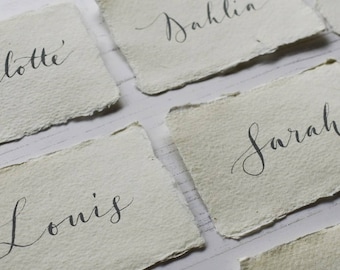 lotté
Dahlia
Sarah
Louis